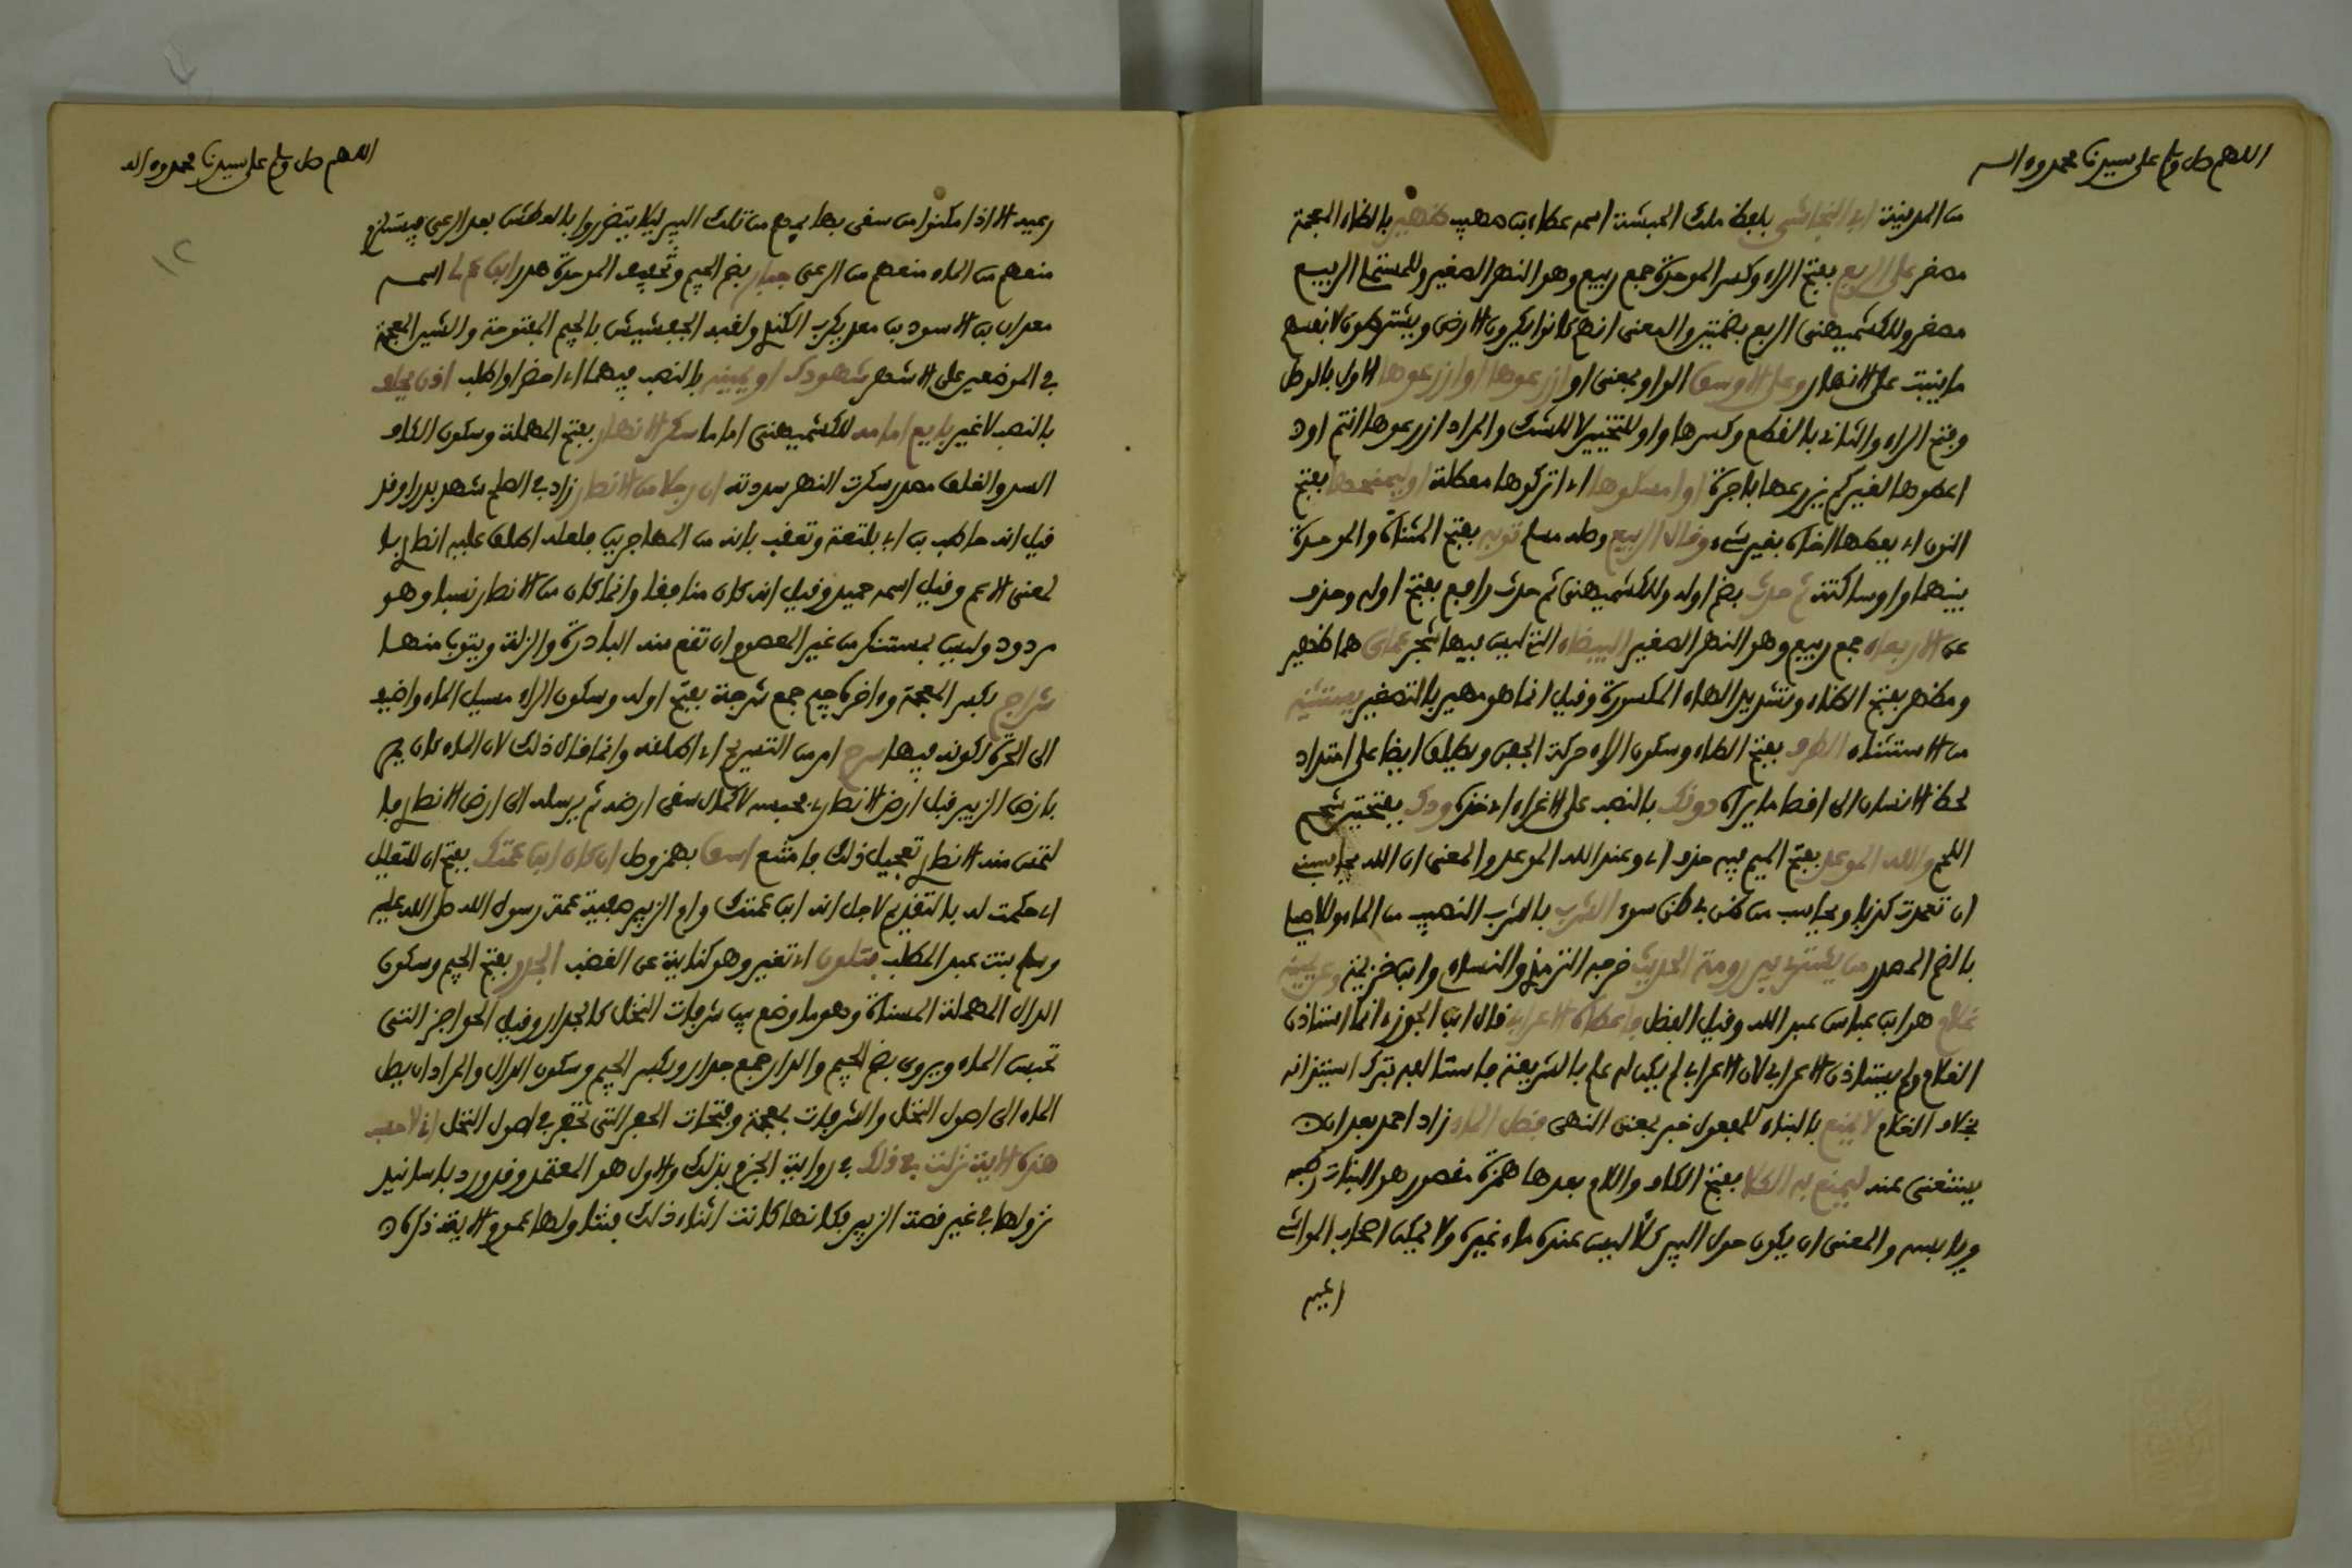 اللهم صل وسلم على سيدنا محمد وءاله
من المدينة أبي النجاشي بلفظ ملك الحبشة اسمه عطاء بن صهيب ظهير بالظاء المعجمة
مصغر على الربع بفتح الراء وكسر الموحدة جمع ربيع وهو النهر الصغير وللمستملي الربيع
مصغر وللكشميهني الربع بضمتين والمعنى انهم كانوا يكرون الارض ويشترطون لانفسهم
ما ينبت على الانهار وعلى الاوسق الواو بمعنى او ازرعوها او ازرعوها الاول بالوصل
وفتح الراء والثاني بالقطع وكسرها واو للتخيير لا للشك والمراد ازرعوها انتم او
اعطوها لغيركم يزرعها باجرة او امسكوها اي اتركوها معطلة او ليمنحها بفتح
النون اي يعطها اخاه بغير شيء وقال الربيع وصله مسلم ثوير بفتح المثناة والموحدة
بينهما واو ساكنة ثم حدث بضم اوله وللكشميهني ثم حدث رافع بفتح اوله وحذف
عن الاربعاء جمع ربيع وهو النهر الصغير البيضاء التي ليس فيها شجر عماي هما ظهير
ومظهر بفتح الظاء وتشديد الهاء المكسورة وقيل انما هو مهير بالتصغير يستثنيه
من الاستثناء الطرف بفتح الطاء وسكون الراء حركة الجفن ويطلق ايضا على امتداد
لحظ الانسان الى اقصا ما يراه دونك بالنصب على الاغراء اي خذه ودك بفتحتين شحم
اللحم والله الموعد بفتح الميم فيه حذف اي وعند الله الموعد والمعنى ان الله يحاسبني
ان تعمدت كذبا ويحاسب من ظن بي ظن سوء الشرب بالشرب النصيب من الماء وللاصيلي
بالضم المصدر من يشتري بير رومة الحديث خرجه الترمذي والنساءي وابن خزيمة وعن يمينه
غلام هو ابن عباس عبد الله وقيل الفضل فاعطاه الاعرابي قال ابن الجوزي انما استاذن
الغلام ولم يستاذن الاعرابي لان الاعرابي لم يكن له علم بالشريعة فاستالفه بترك استيذانه
بخلاف الغلام لا يمنع بالبناء للمفعول خبر بمعنى النهي فضل الماء زاد احمد بعد ان
يستغنى عنه ليمنع به الكلا بفتح الكاف واللام بعدها همزة مقصور هو النبات رطبه
ويابسه والمعنى ان يكون حول البير كلأ ليس عنده ماء غيره ولا يمكن اصحاب المواشي
رعيه
اللهم صل وسلم على سيدنا محمد وءاله
١٢
رعيه الا اذا مكنوا من سقي بهايمهم من تلك البير ليلا يتضرروا بالعطش بعد الرعي فيستلزم
منعهم من الماء منعهم من الرعي جبار بضم الجيم وتخفيف الموحدة هدر ابن عم لي اسمه
معدان بن الاسود بن معد يكرب الكندي ولقبه الجفشيش بالجيم المفتوحة والشين المعجمة
في الموضعين على الاشهر شهودك او يمينه بالنصب فيهما اي احضر او اطلب اذن يحلف
بالنصب لا غير بايع امامه للكشميهني اماما سكر الانهار بفتح المهملة وسكون الكاف
السد والغلق مصدر سكرت النهر سددته ان رجلا من الانصار زاد في الصلح شهد بدرا وقد
قيل انه حاطب بن ابي بلتعة وتعقب بانه من المهاجرين فلعله اطلق عليه انصاريا
لمعنى الاعم وقيل اسمه حميد وقيل انه كان منافقا وانما كان من الانصار نسبا وهو
مردود وليس بمستنكر من غير المعصوم ان تقع منه البادرة والزلة ويتوب منها
شراج بكسر المعجمة وءاخره جيم جمع شرجة بفتح اوله وسكون الراء مسيل الماء واضيف
الى الحرة لكونه فيها سرح امر من التسريح اي اطلقه وانما قال ذلك لان الماء كان يمر
بارض الزبير قبل ارض الانصاري فيحبسه لاكمال سقي ارضه ثم يرسله الى ارض الانصاري فا
لتمس منه الانصاري تعجيل ذلك فامتنع اسق بهمز وصل ان كان ابن عمتك بفتح ان للتعليل
اي حكمت له بالتقديم لاجل انه ابن عمتك وام الزبير صفية عمة رسول الله صلى الله عليه
وسلم بنت عبد المطلب فتلون اي تغير وهو كناية عن الغضب الجدر بفتح الجيم وسكون
الدال المهملة المسناة وهو ما وضع بين شربات النخل كالجدار وقيل الحواجز التي
تحبس الماء ويروى بضم الجيم والدال جمع جدار وبكسر الجيم وسكون الدال والمراد ان يصل
الماء الى اصول النخل والشربات بمعجمة وفتحات الحفر التي تحفر في اصول النخل اني لاحسب
هذه الاية نزلت في ذلك في رواية الجزم بذلك والاول هو المعتمد وقد ورد باسانيد
نزولها في غير قصة الزبير فكانها كانت اثناء ذلك فتناولها عموم الاية ذكره